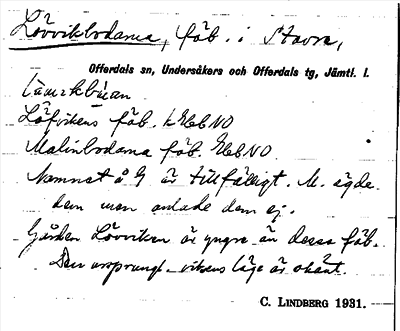 Lövviksbodarna, fäb. i Stavre,
Offerdals sn, Undersåkers och Offerdals tg, Jämtl. l.
Löfvikens fäb. kEbNO
Malinbodarna fäb. EbNO
Namnet å G är tillfälligt. M. ägde
dem men anlade dem ej.
Gården Lövviken är yngre än dessa fäb.
Den ursprungl. vikens läge är okänt.
C. LINDBERG 1931.